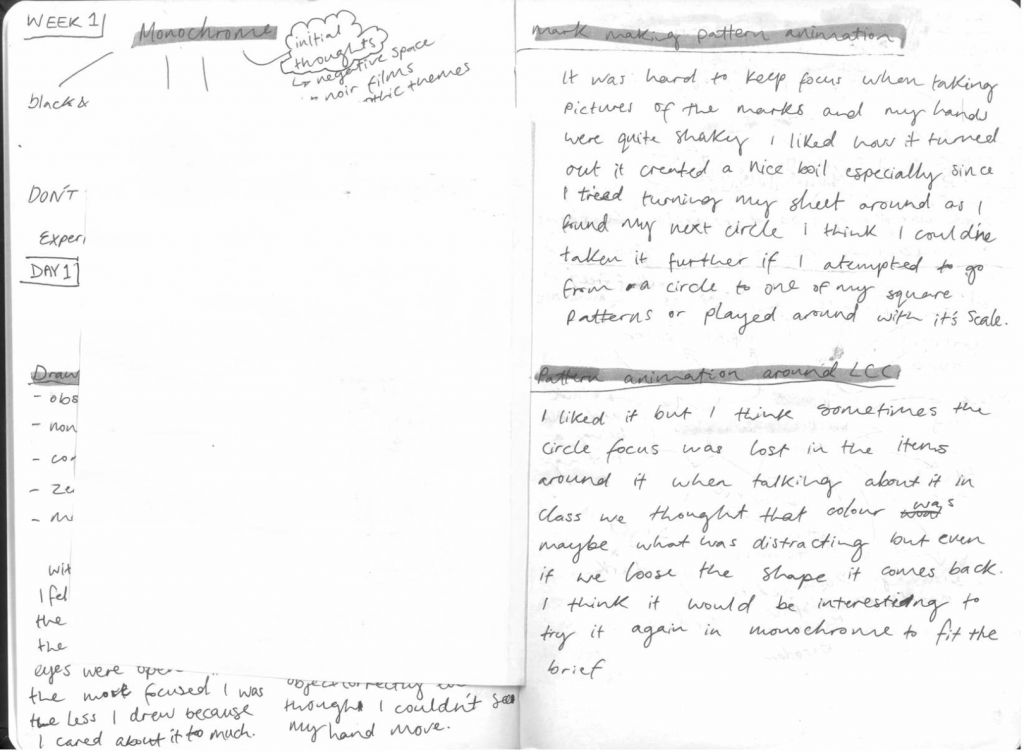 WEEK 1
Monochrome
initial
thoughts
↳ negative space
noir films
thic themes
black &
DON'T
Exper
DAY 1
Draw
- obs
- non
- co
- Ze
wit
I fel
the
the
eyes were open
the most focused I was
the less I drew because
I cared about it to much.
thought I couldn't see
my hand move.
mark making pattern animation
It was hard to keep focus when taking
pictures of the marks and my hands
were quite shaky I liked how it turned
out it created a nice boil especially since
I tried turning my sheet around as I
found my next circle I think I could've
taken it further if I atempted to go
from a circle to one of my square
patterns or played around with it's scale.
Pattern animation around LCC
I liked it but I think sometimes the
circle focus was lost in the items
around it when talking about it in
class we thought that colour was
maybe what was distracting but even
if we loose the shape it comes back.
I think it would be interesting to
try it again in monochrome to fit the
brief